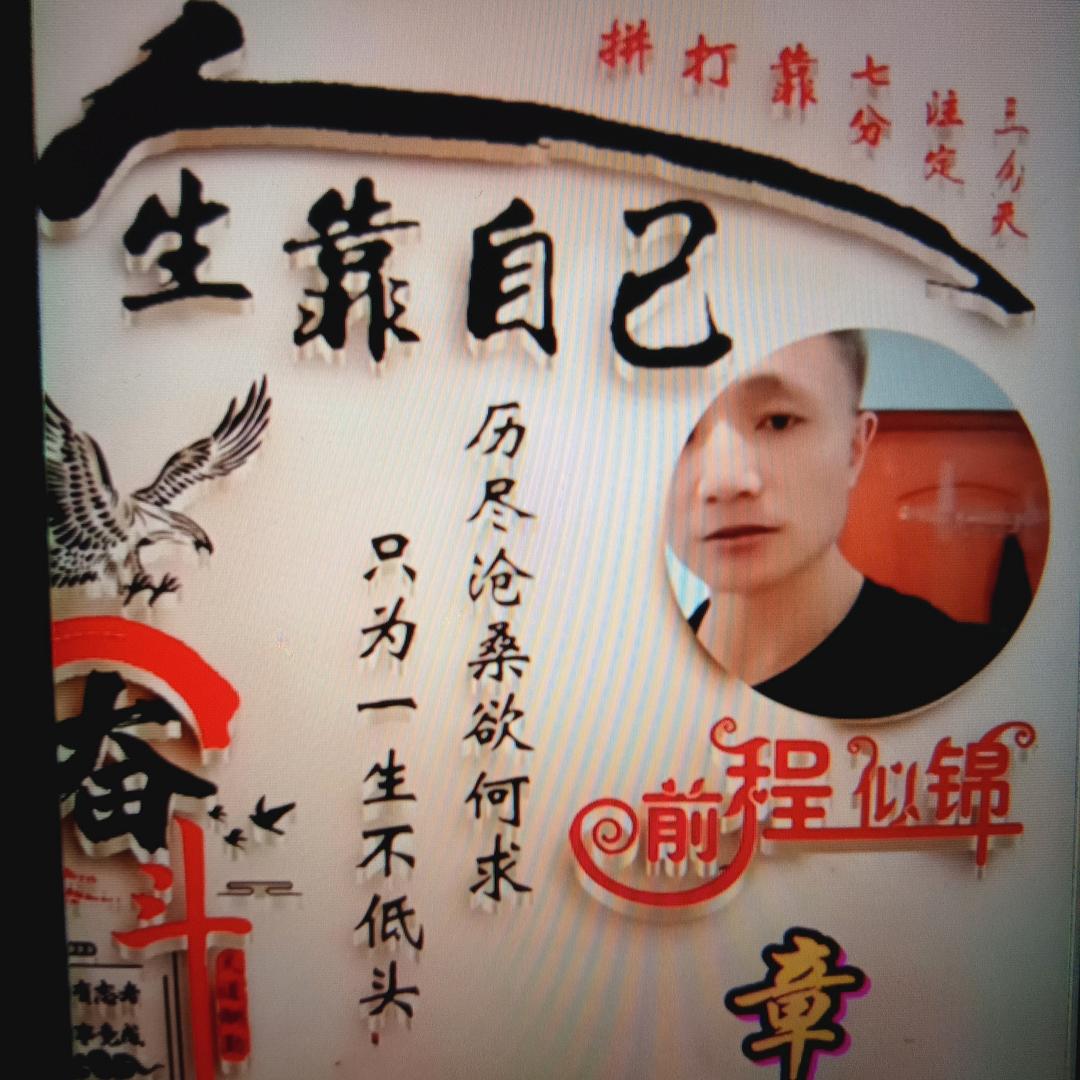 人生靠自己
三分天
注定
七分
靠
打
拼
历尽沧桑欲何求
只为一生不低头
前程似锦
奋斗
有志者
事竟成
天道酬勤
章